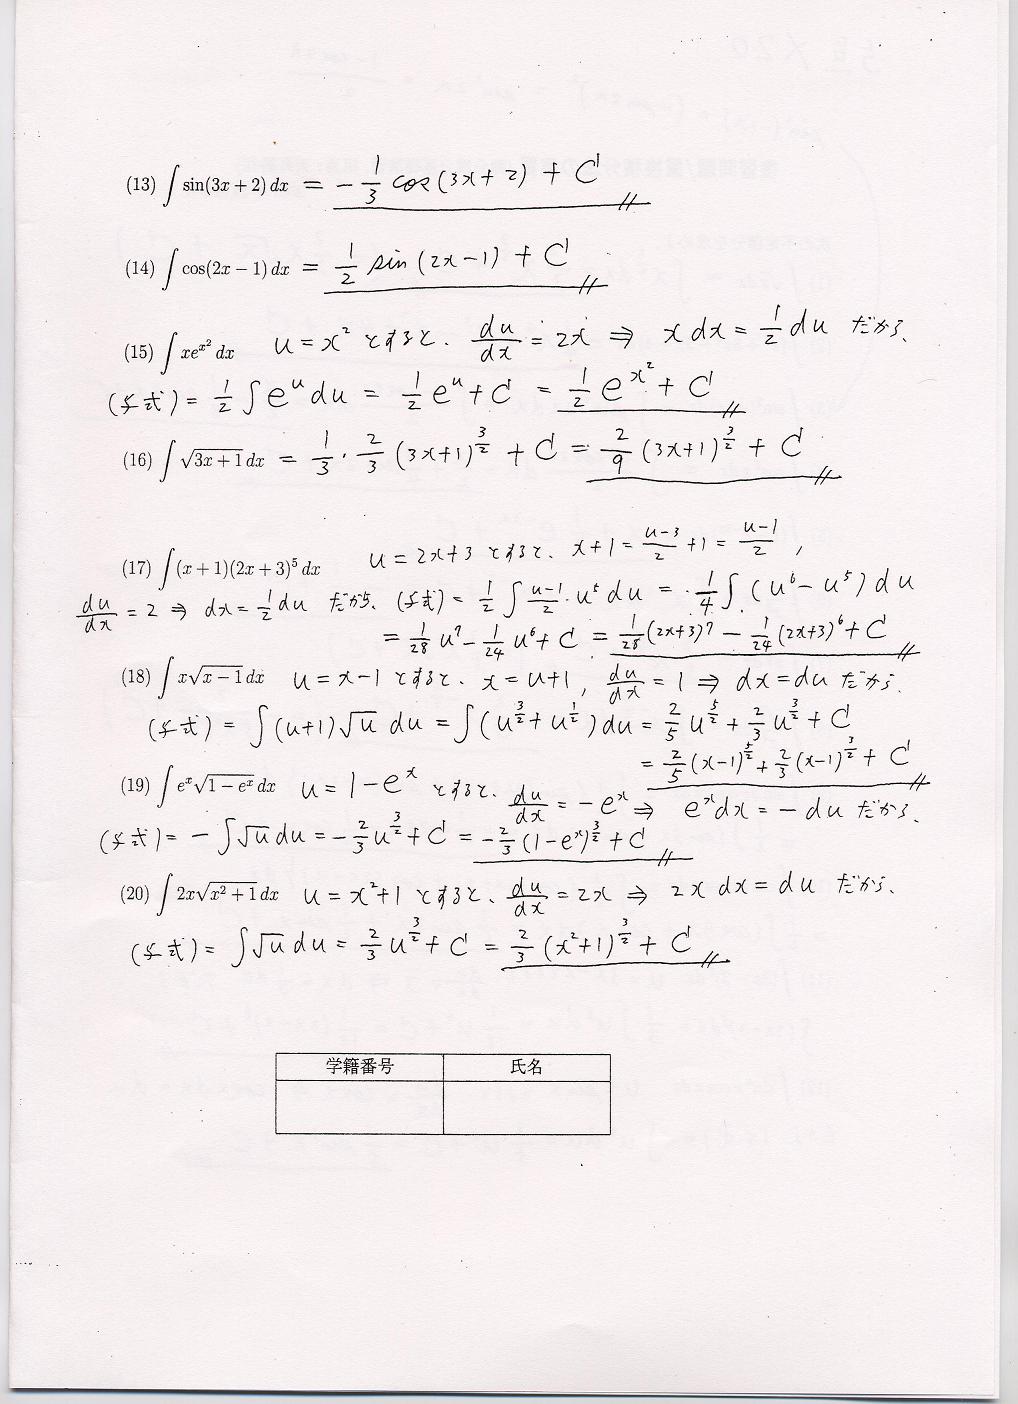 (13) ∫ sin(3x + 2) dx = -1/3 cos(3x+2) + C
(14) ∫ cos(2x − 1) dx = 1/2 sin(2x-1) + C
(15) ∫ xe^{x^2} dx u = x^2 とすると、 du/dx = 2x ⇒ x dx = 1/2 du だから、
(与式) = 1/2 ∫ e^u du = 1/2 e^u + C = 1/2 e^{x^2} + C
(16) ∫ √(3x + 1) dx = 1/3 · 2/3 (3x+1)^{3/2} + C = 2/9 (3x+1)^{3/2} + C
(17) ∫ (x + 1)(2x + 3)^5 dx u = 2x+3 とすると、 x+1 = (u-3)/2 + 1 = (u-1)/2 ,
du/dx = 2 ⇒ dx = 1/2 du だから、 (与式) = 1/2 ∫ (u-1)/2 · u^5 du = 1/4 ∫ (u^6 - u^5) du
= 1/28 u^7 - 1/24 u^6 + C = 1/28 (2x+3)^7 - 1/24 (2x+3)^6 + C
(18) ∫ x√(x − 1) dx u = x-1 とすると、 x = u+1 , du/dx = 1 ⇒ dx = du だから、
(与式) = ∫ (u+1)√u du = ∫ (u^{3/2} + u^{1/2}) du = 2/5 u^{5/2} + 2/3 u^{3/2} + C
= 2/5 (x-1)^{5/2} + 2/3 (x-1)^{3/2} + C
(19) ∫ e^x√(1 − e^x) dx u = 1-e^x とすると、 du/dx = -e^x ⇒ e^x dx = -du だから、
(与式) = -∫ √u du = -2/3 u^{3/2} + C = -2/3 (1-e^x)^{3/2} + C
(20) ∫ 2x√(x^2 + 1) dx u = x^2+1 とすると、 du/dx = 2x ⇒ 2x dx = du だから、
(与式) = ∫ √u du = 2/3 u^{3/2} + C = 2/3 (x^2+1)^{3/2} + C
学籍番号 氏名